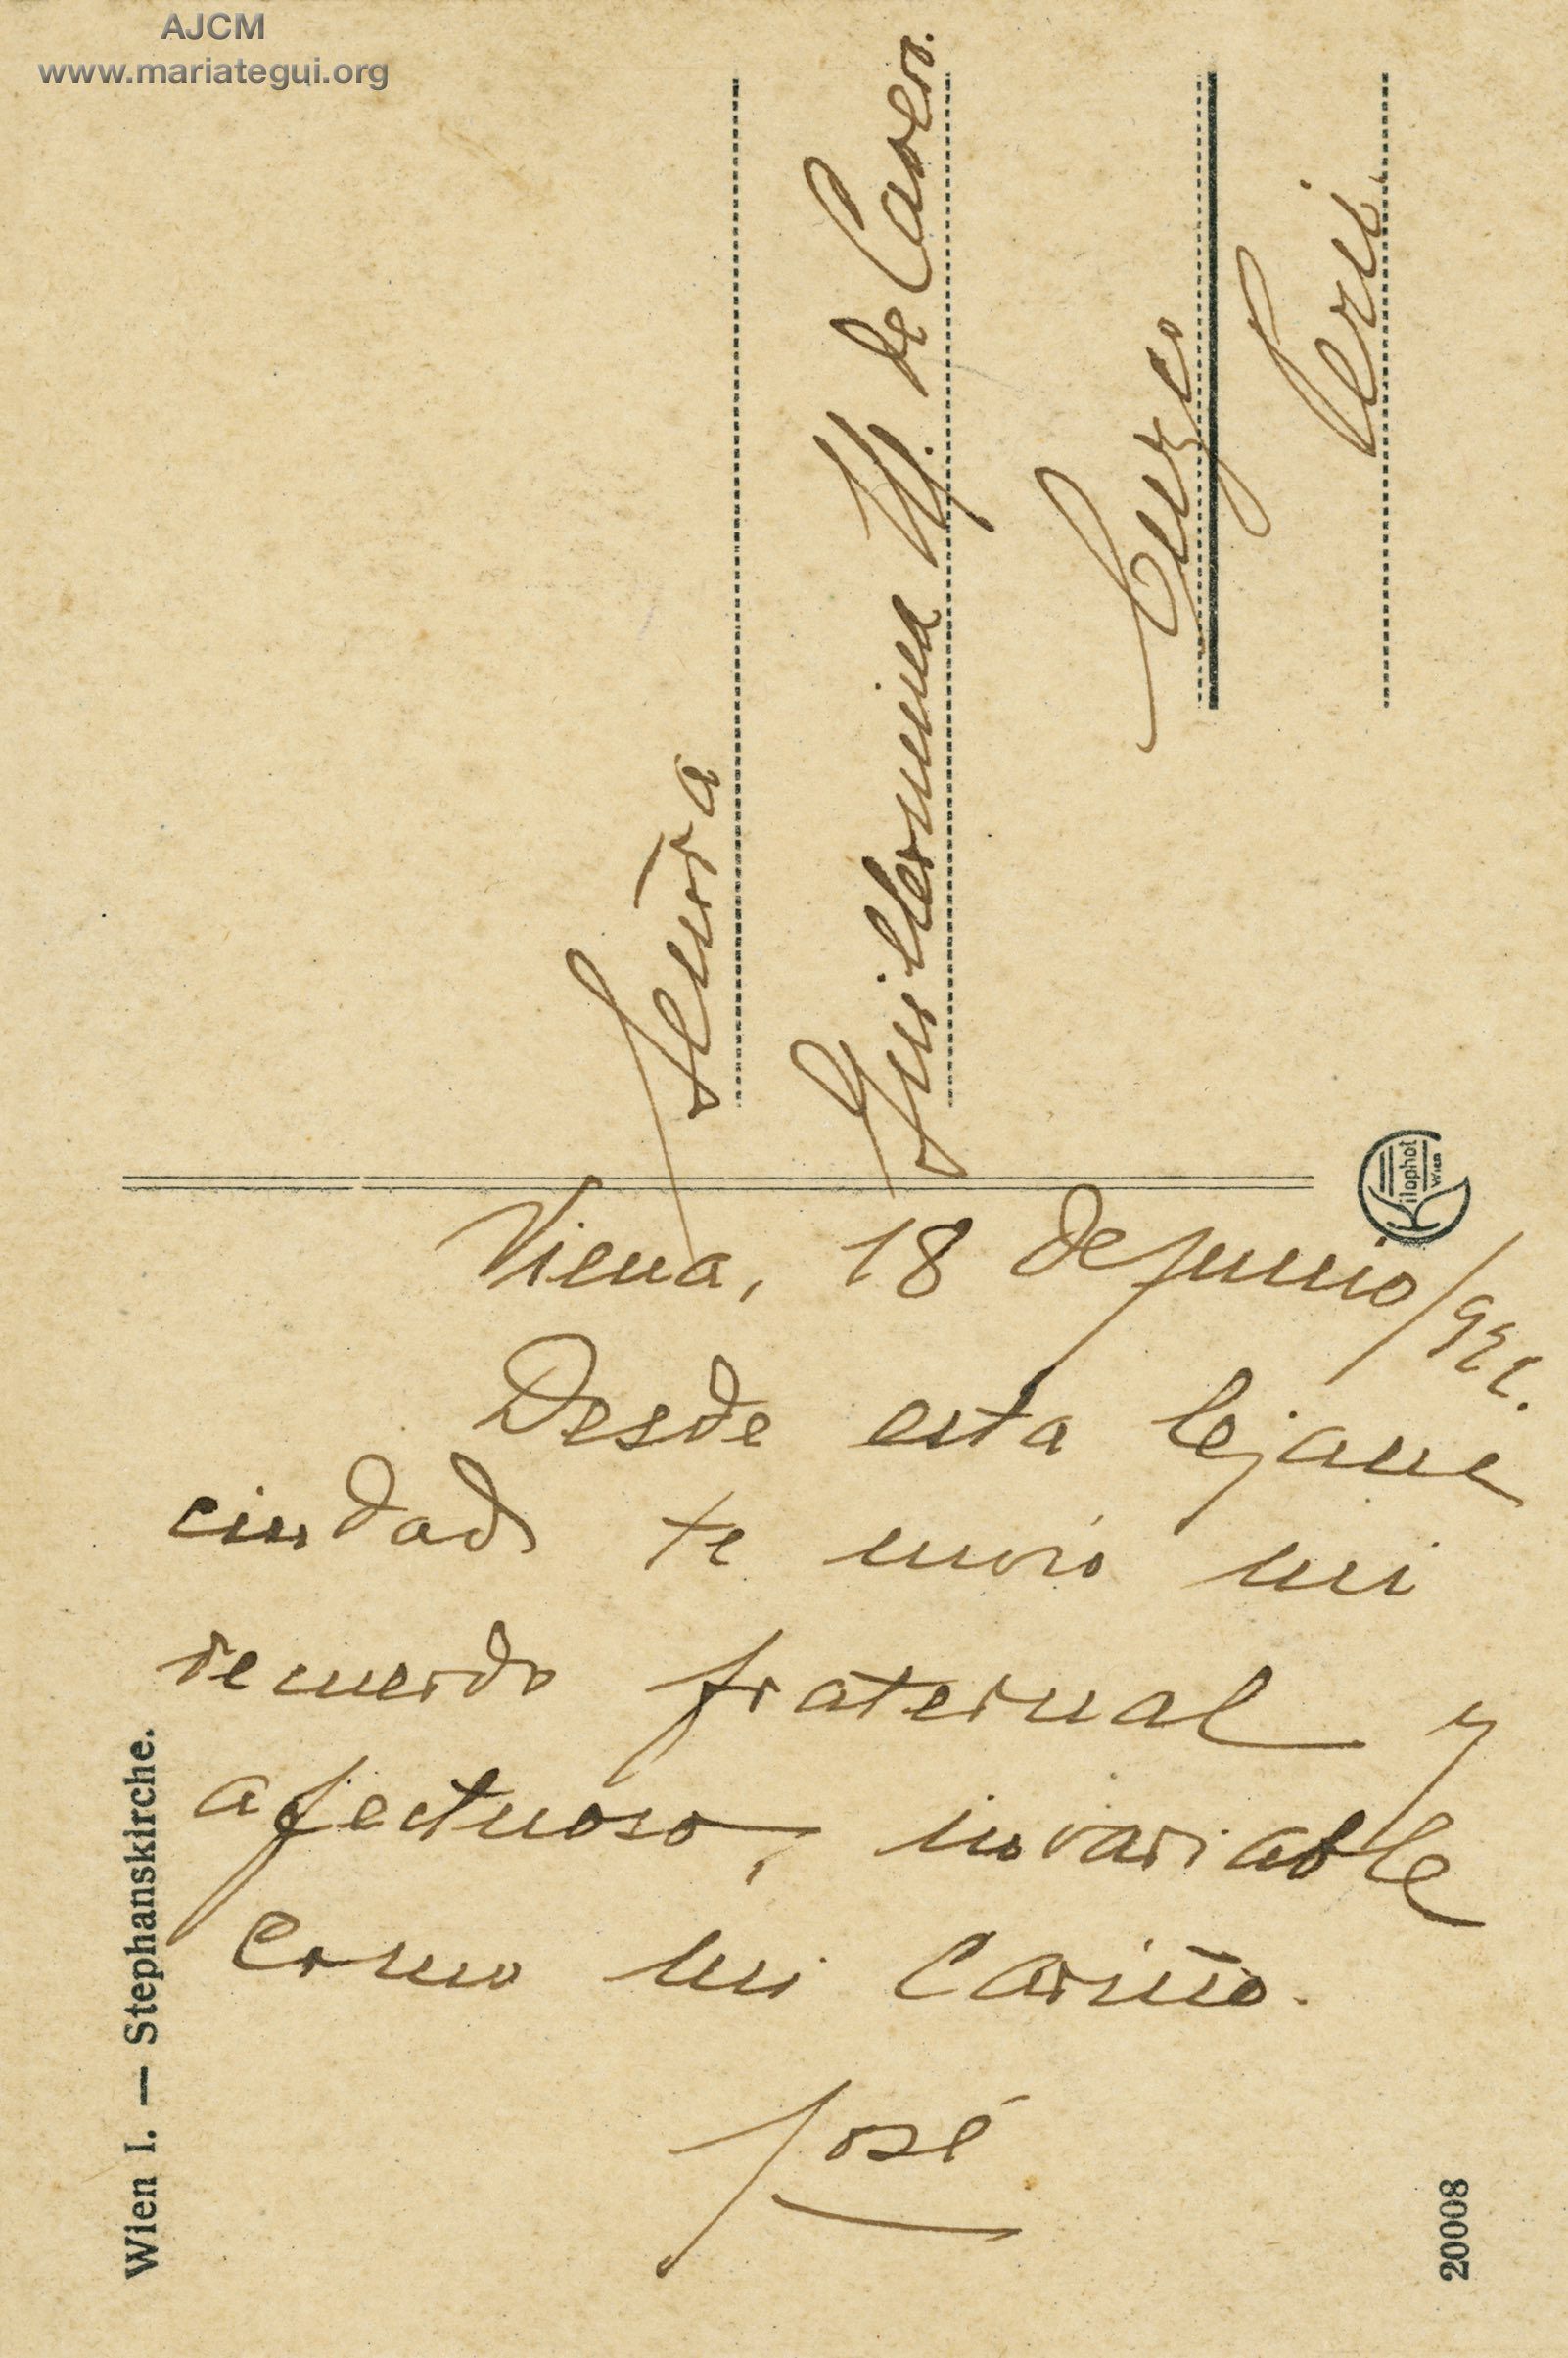 AJCM
www.mariategui.org
Señora
Guillermina M. de Cavero.
Cuzco
Perú.
Viena, 18 de junio/922.
Desde esta lejana
ciudad te envío mi
recuerdo fraternal y
afectuoso, invariable
como mi cariño.
José
Wien I. — Stephanskirche.
20008
ilophot
Wien